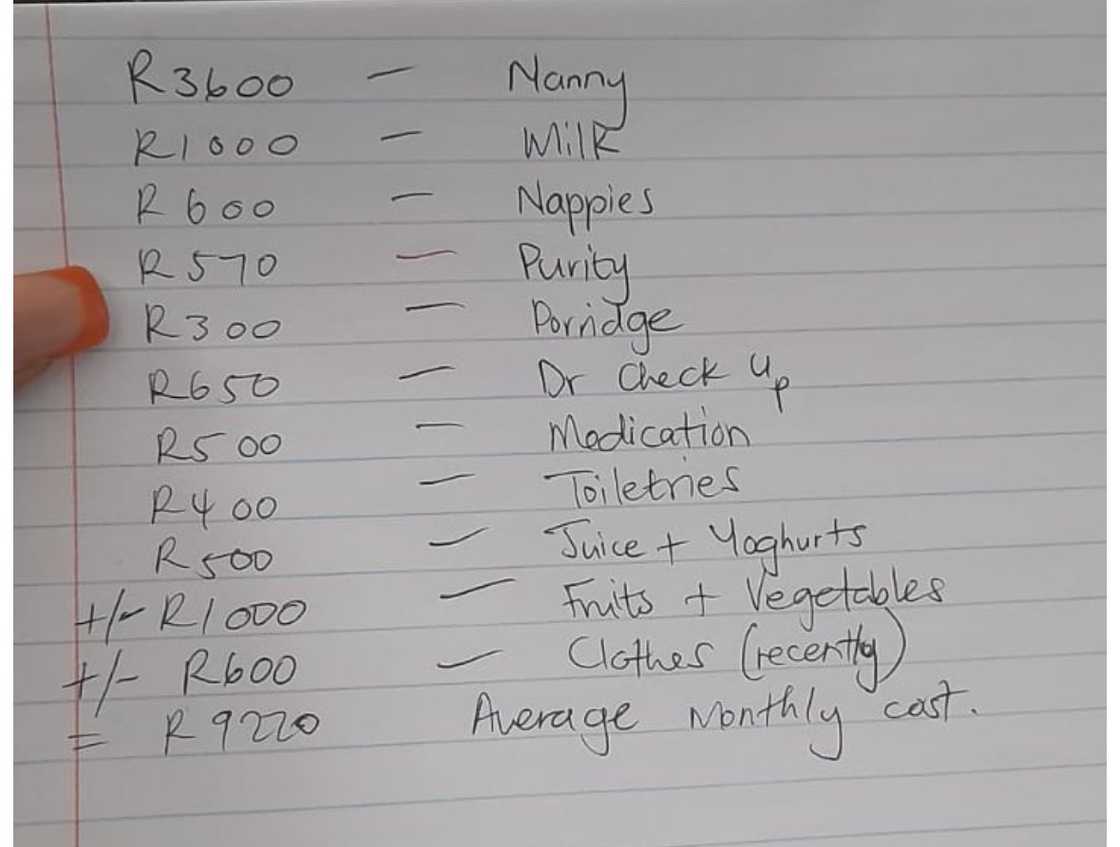 R3600 — Nanny
R1000 — Milk
R600 — Nappies
R570 — Purity
R300 — Porridge
R650 — Dr Check Up
R500 — Medication
R400 — Toiletries
R500 — Juice + Yoghurts
+/- R1000 — Fruits + Vegetables
+/- R600 — Clothes (recently)
= R9220 Average Monthly cost.